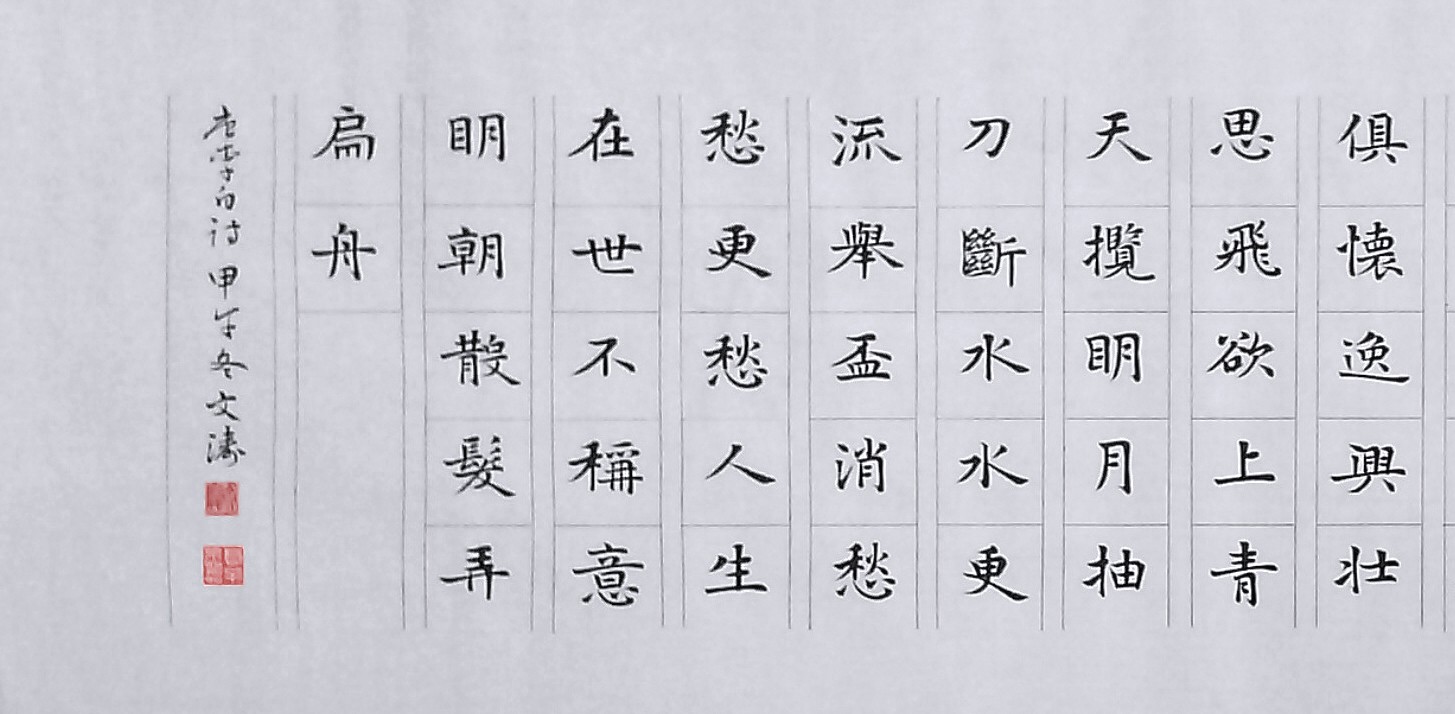 俱懷逸興壯
思飛欲上青
天攬明月抽
刀斷水水更
流舉盃消愁
愁更愁人生
在世不稱意
明朝散髮弄
扁舟
唐李白詩甲午冬文濤